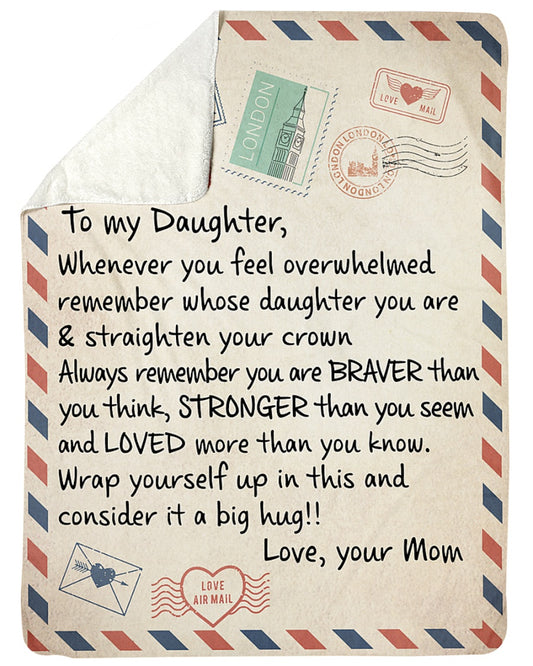 LONDON
LOVE MAIL
LONDON LONDON LONDON LONDON
To my Daughter,
Whenever you feel overwhelmed
remember whose daughter you are
& straighten your crown
Always remember you are BRAVER than
you think, STRONGER than you seem
and LOVED more than you know.
Wrap yourself up in this and
consider it a big hug!!
Love, your Mom
LOVE
AIR MAIL